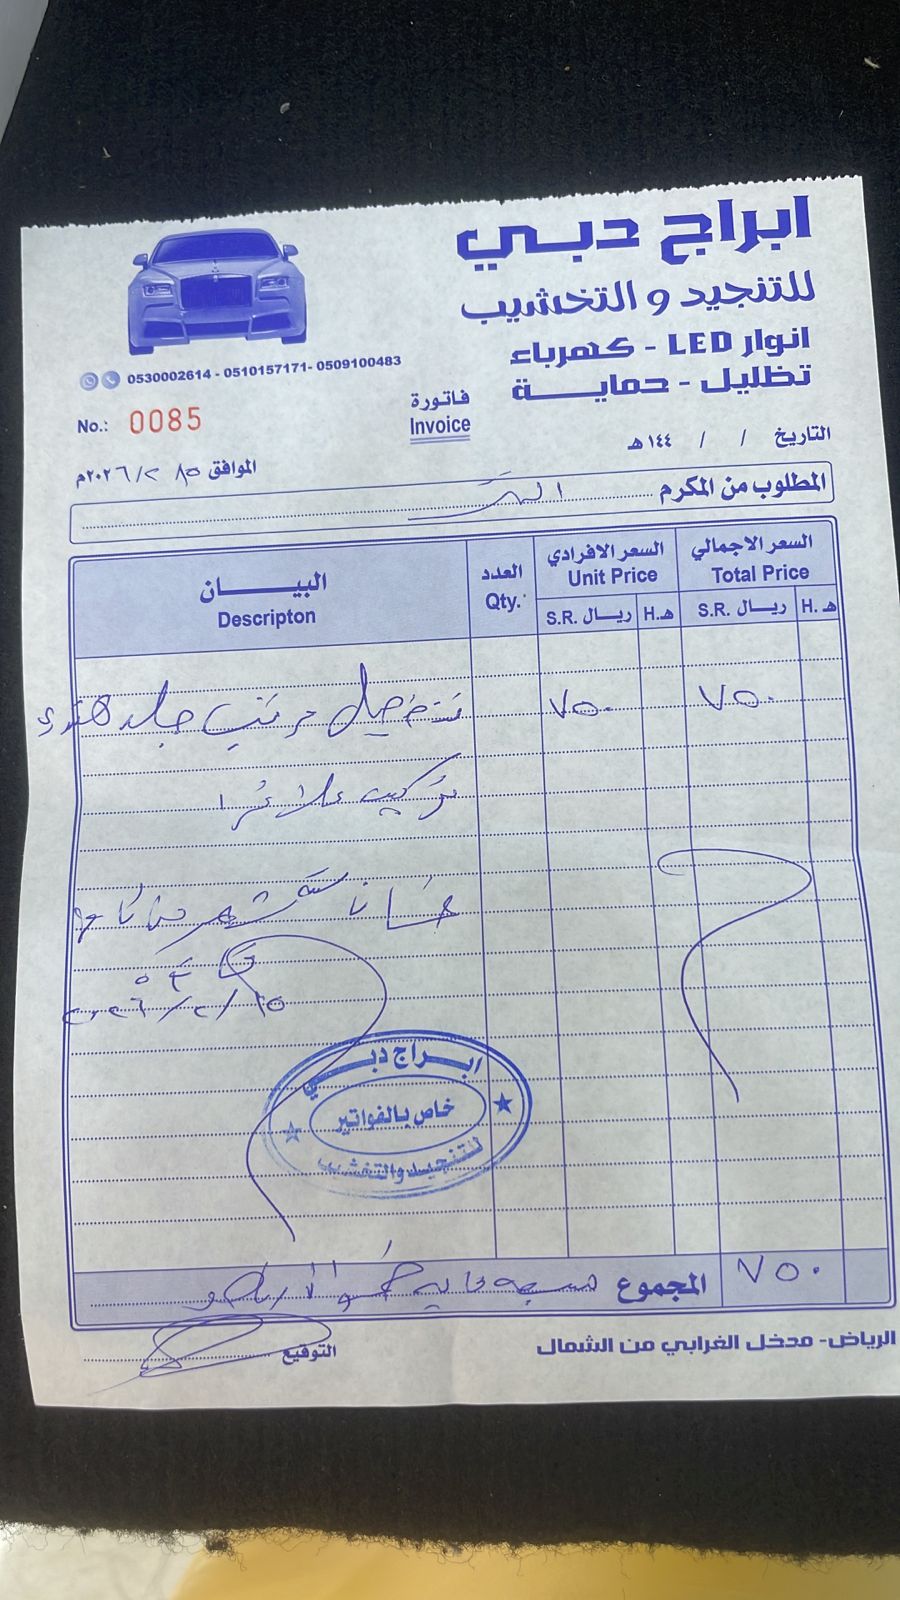 ابراج دبي
للتنجيد و التخشيب
انوار LED - كهرباء
تظليل - حماية
0530002614 - 0510157171- 0509100483
No.: 0085
فاتورة
Invoice
التاريخ / / ١٤٤هـ
الموافق / ٢٠٢٦م
المطلوب من المكرم
البيان
Descripton
العدد
Qty.
السعر الافرادي
Unit Price
السعر الاجمالي
Total Price
ريال S.R.
هـ.H
ريال S.R.
هـ.H
مرتب جلد
٧٥٠
٧٥٠
تركيب
شهر
ابراج دبي
خاص بالفواتير
للتنجيد والتخشيب
المجموع
٧٥٠
الرياض- مدخل الغرابي من الشمال
التوقيع